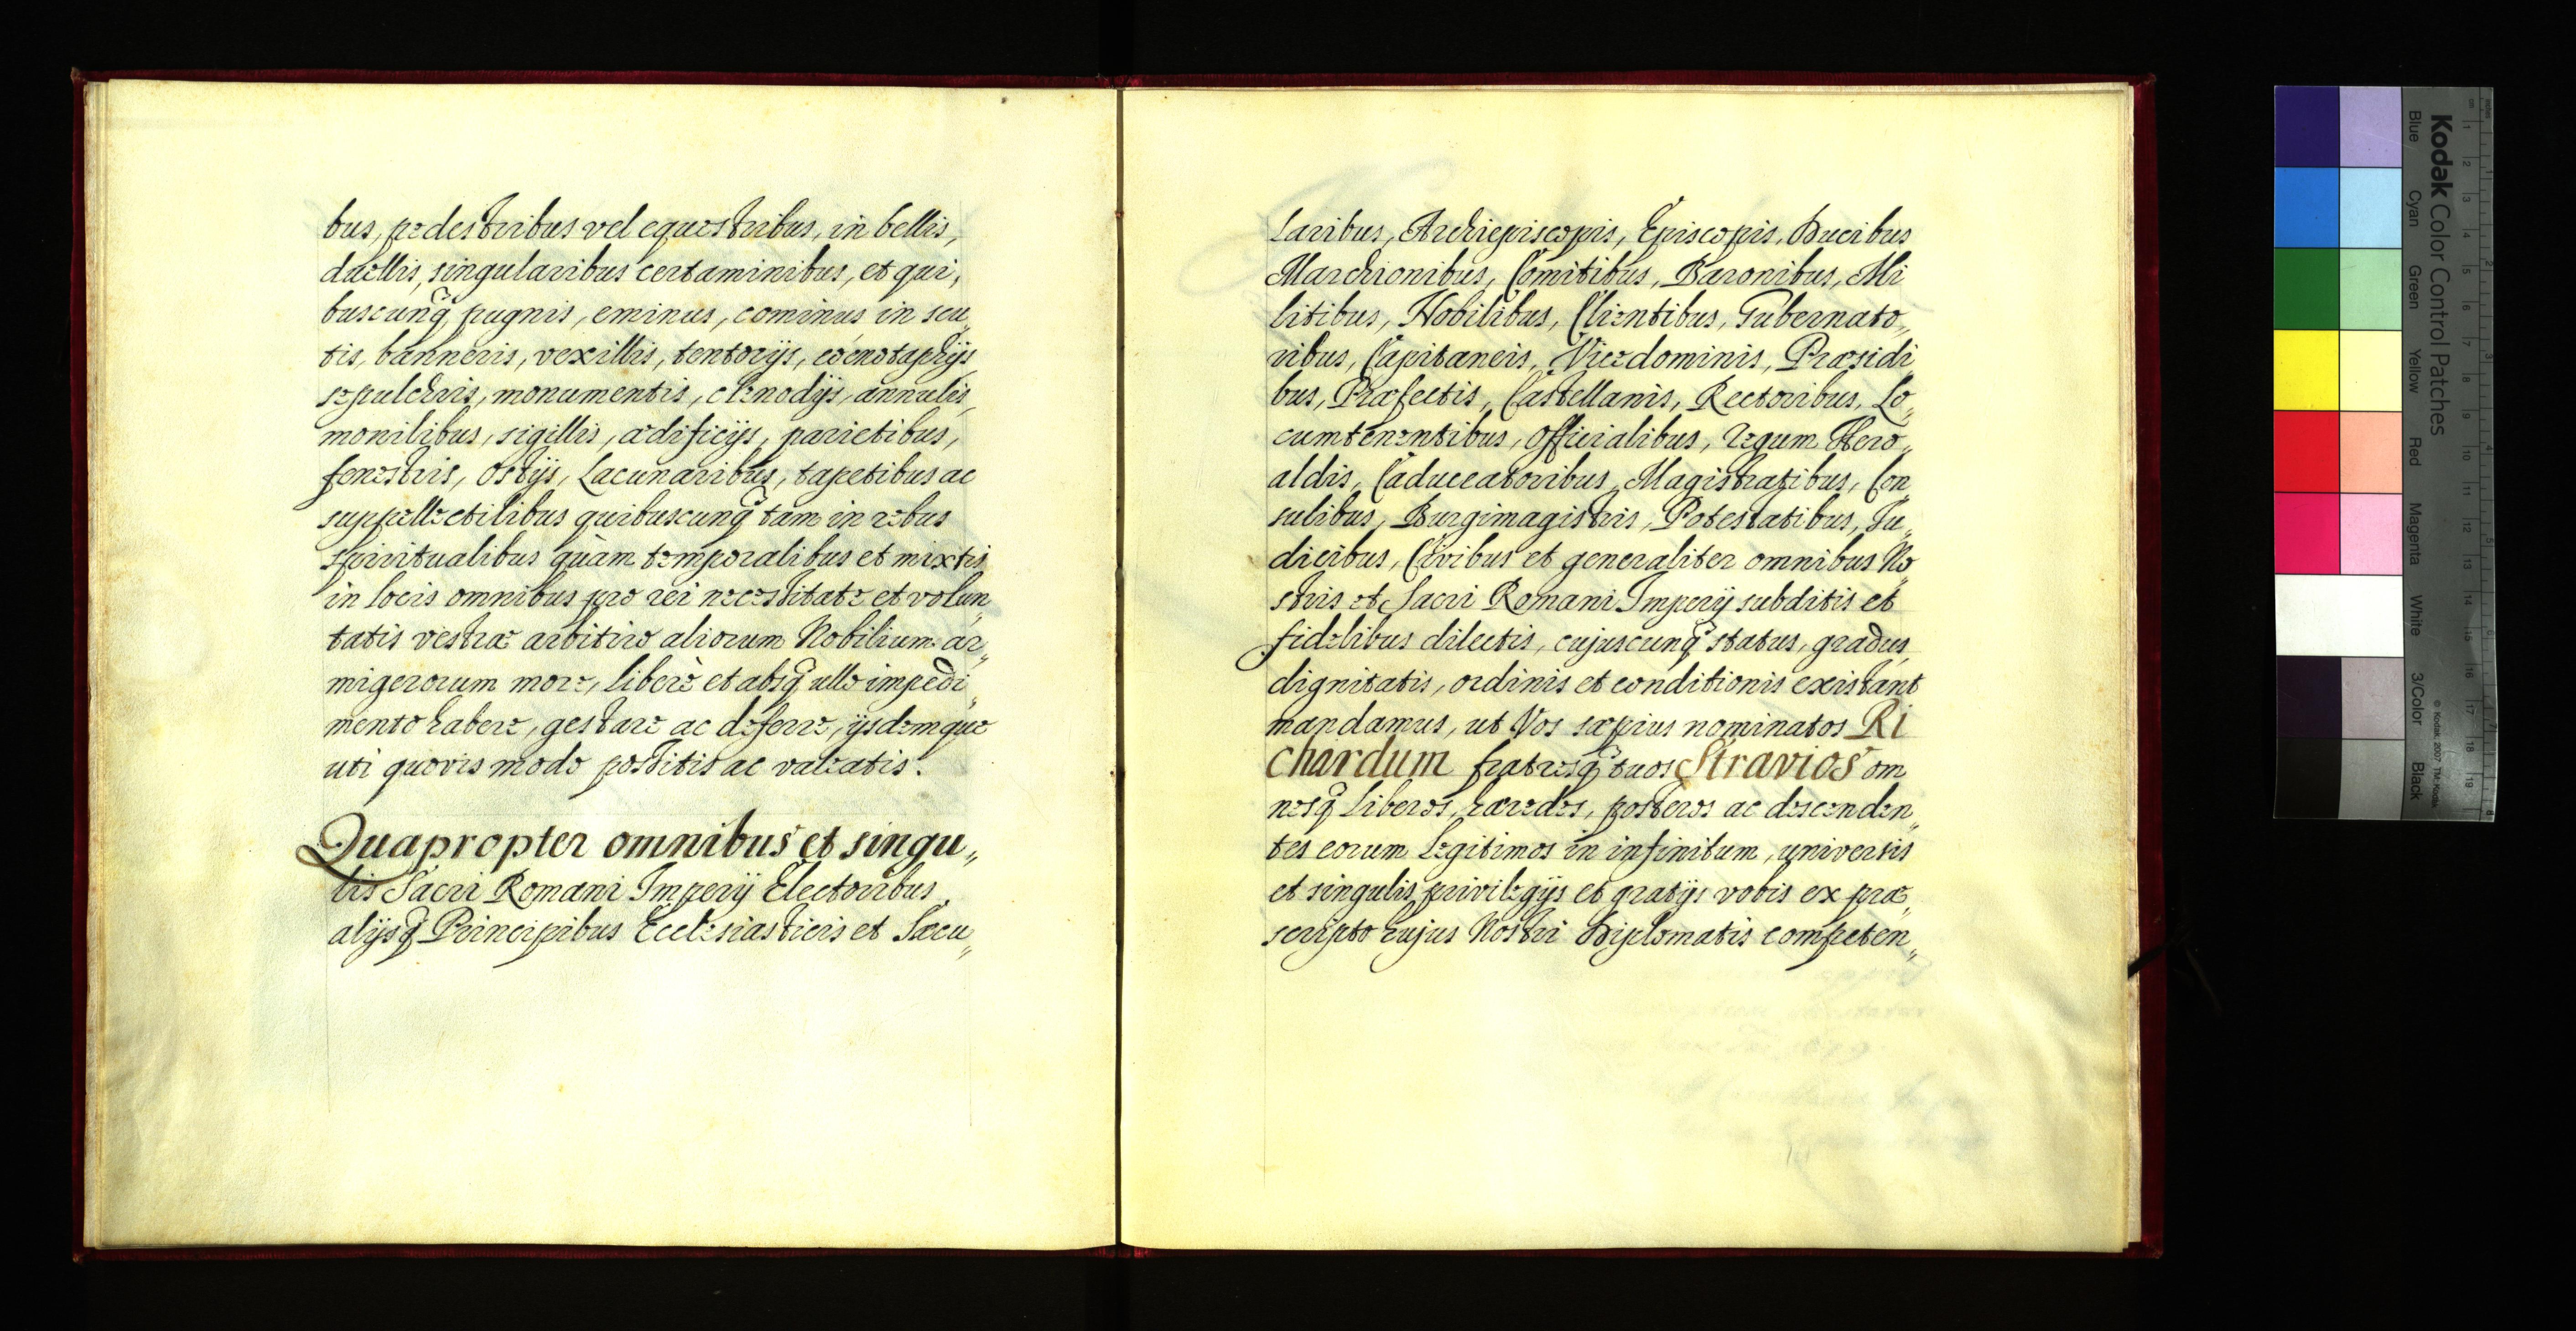 bus, pedestribus vel equestribus, in bellis,
duellis, singularibus certaminibus, et qui,
buscunq, pugnis, eminus, cominus in scu,,
tis, banneris, vexillis, tentorijs, coenotaphijs
sepulchris, monumentis, clenodijs, annulis,
monilibus, sigillis, ædificijs, parietibus,
fenestris, ostijs, Lacunaribus, tapetibus ac
suppellectilibus quibuscunq tam in rebus
spiritualibus quàm temporalibus et mixtis
in locis omnibus pro rei necessitate et volun,,
tatis vestræ arbitrio aliorum Nobilium ar,,
migerorum more, liberè et absq ullo impedi,,
mento habere, gestare ac deferre, ijsdemque
uti quovis modo possitis ac valeatis.
Quapropter omnibus et singu,,
lis Sacri Romani Imperij Electoribus,
alijsq Principibus Ecclesiasticis et Sæcu,,
Laribus, Archiepiscopis, Episcopis, Ducibus
Marchionibus, Comitibus, Baronibus, Mi
litibus, Nobilibus, Clientibus, Gubernato,,
ribus, Capitaneis, Vicedominis, Præsidi,,
bus, Præfectis, Castellanis, Rectoribus, Lo,,
cumtenentibus, Officialibus, regum Hero,,
aldis, Caduceatoribus, Magistratibus, Con,,
sulibus, Burgimagistris, Potestatibus, Ju,,
dicibus, Civibus et generaliter omnibus No,,
stris et Sacri Romani Imperij subditis et
fidelibus dilectis, cujuscunq status, gradus,
dignitatis, ordinis et conditionis existant
mandamus, ut Vos sæpius nominatos Ri
chardum fratresq tuos Stravios om
nesq Liberos, hæredes, posteros ac descenden,,
tes eorum Legitimos in infinitum, universis
et singulis privilegijs et gratijs vobis ex præ,,
scripto hujus Nostri Diplomatis competen,,
Kodak Color Control Patches
Blue Cyan Green Yellow Red Magenta White 3/Color Black
© Kodak, 2007 TM: Kodak